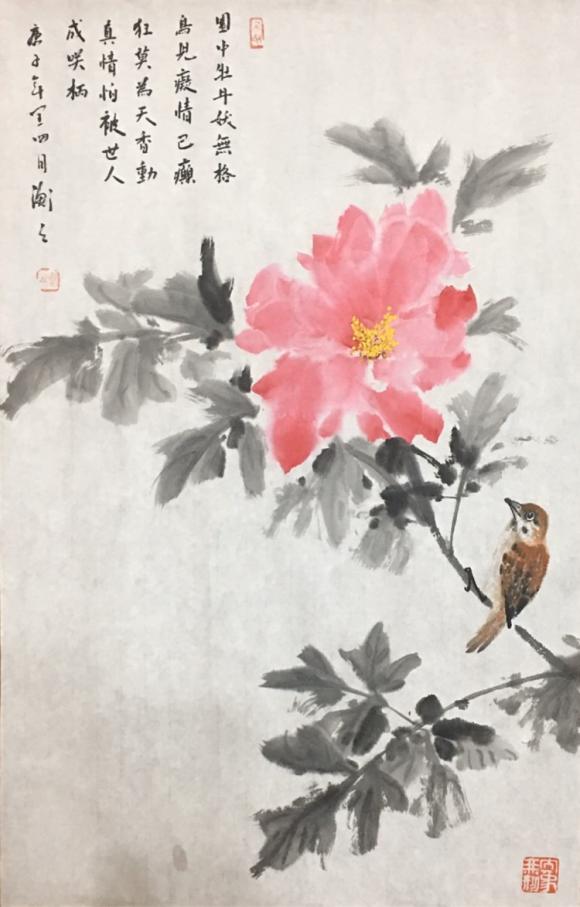 園中牡丹妖無格
鳥見癡情已癲
狂莫為天香動
真情怕被世人
成咲柄
庚子年閏四月